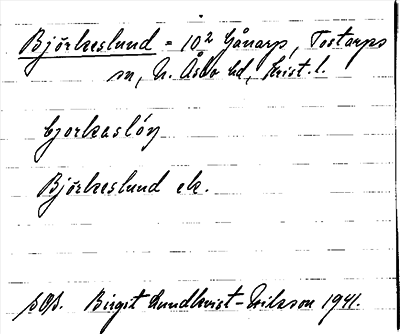 Björkeslund = 10² Gånarp, Tostarps
sn, N. Åsbo hd, Krist. l.
bjorkaslón
Björkeslund ek.
Birgit Lundkvist-Erikson 1941.